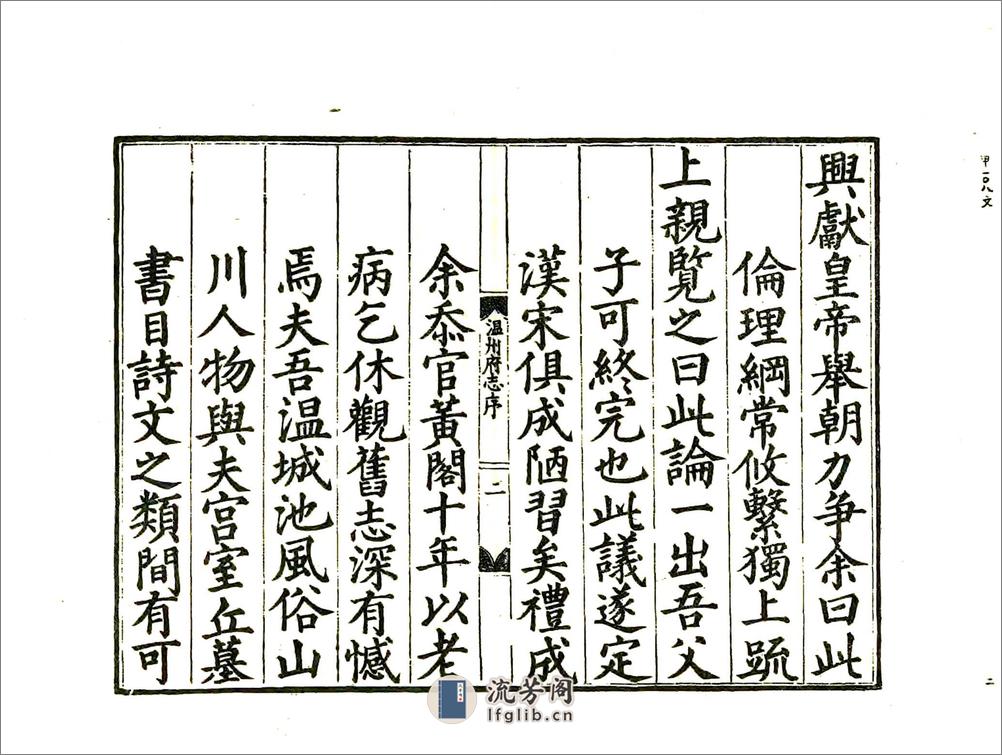 興獻皇帝舉朝力争余曰此
倫理綱常攸繫獨上䟽
上親覽之曰此論一出吾父
子可終完也此議遂定
漢宋俱成陋習矣禮成
温州府志序
二
余忝官黃閣十年以老
病乞休觀舊志深有憾
焉夫吾温城池風俗山
川人物與夫宫室丘墓
書目詩文之類間有可
甲一〇八文
二
流芳阁
lfglib.cn